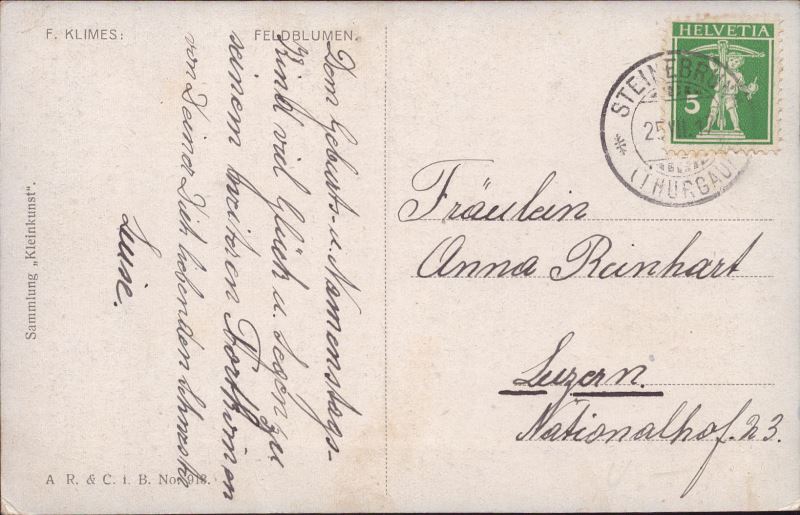 F. KLIMES:
FELDBLUMEN.
Dem Geburts- u. Namenstags-
Kind viel Glück u. Segen zu
seinem weiteren Fortkommen
von Deiner Dich liebenden Schwester
Luise.
Sammlung „Kleinkunst“.
A R. & C. i. B. No. 918.
HELVETIA
5
STEINEBRUNN
25 VII
(THURGAU)
Fräulein
Anna Reinhart
Luzern.
Nationalhof. 23.